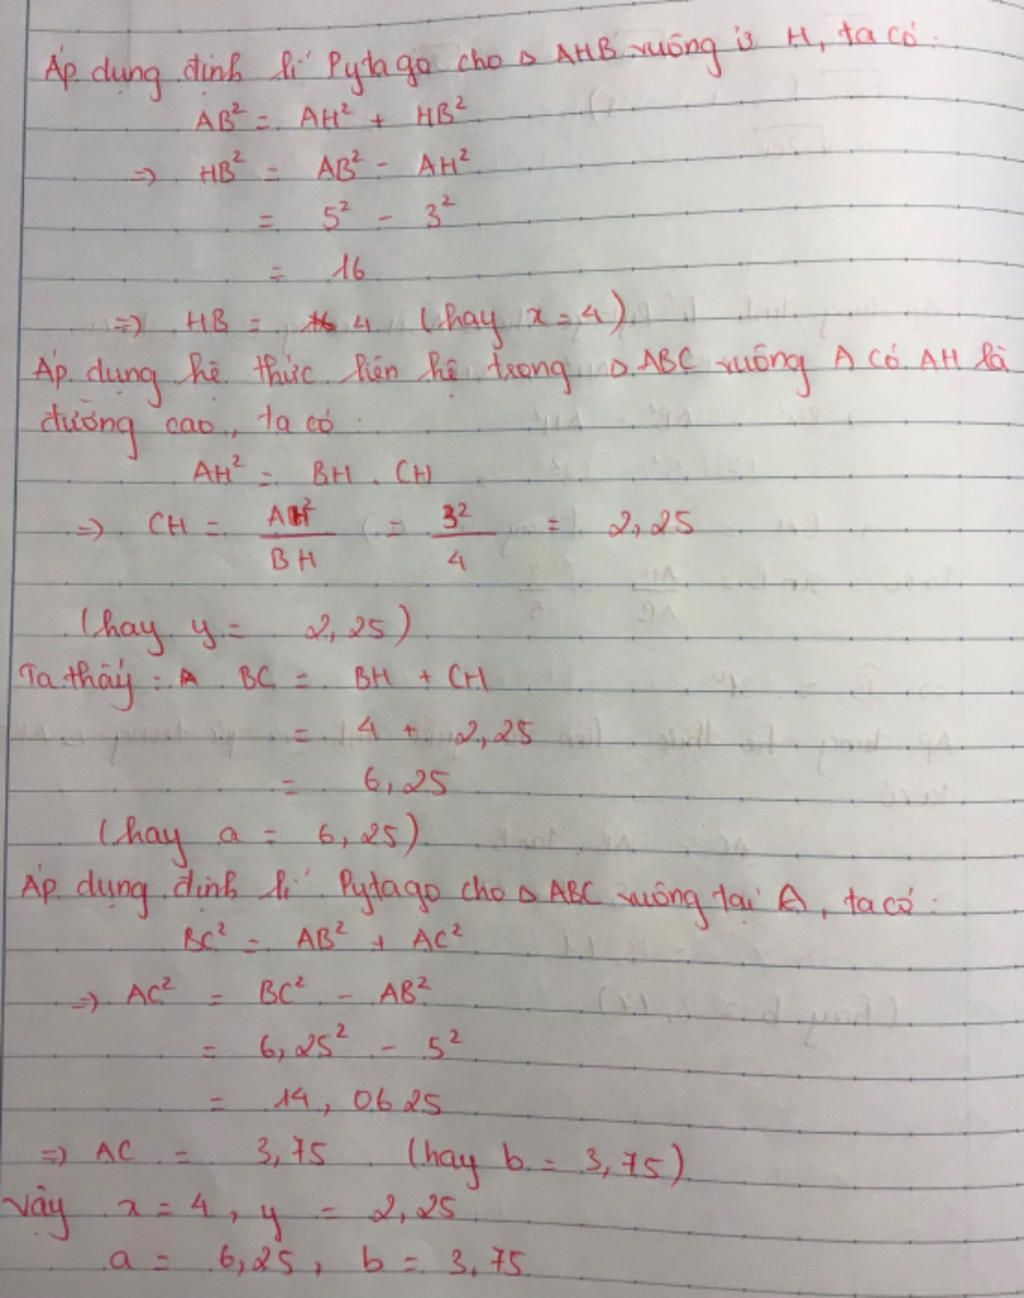 Áp dụng định lí Pytago cho Δ AHB vuông ở H, ta có:
AB² = AH² + HB²
=> HB² = AB² - AH²
= 5² - 3²
= 16
=> HB = 4 (hay x = 4)
Áp dụng hệ thức liên hệ trong Δ ABC vuông A có AH là
đường cao, ta có:
AH² = BH . CH
=> CH = AH²/BH = 3²/4 = 2,25
(hay y = 2,25)
Ta thấy: BC = BH + CH
= 4 + 2,25
= 6,25
(hay a = 6,25)
Áp dụng định lí Pytago cho Δ ABC vuông tại A, ta có:
BC² = AB² + AC²
=> AC² = BC² - AB²
= 6,25² - 5²
= 14,0625
=> AC = 3,75 (hay b = 3,75)
Vậy x = 4, y = 2,25
a = 6,25, b = 3,75